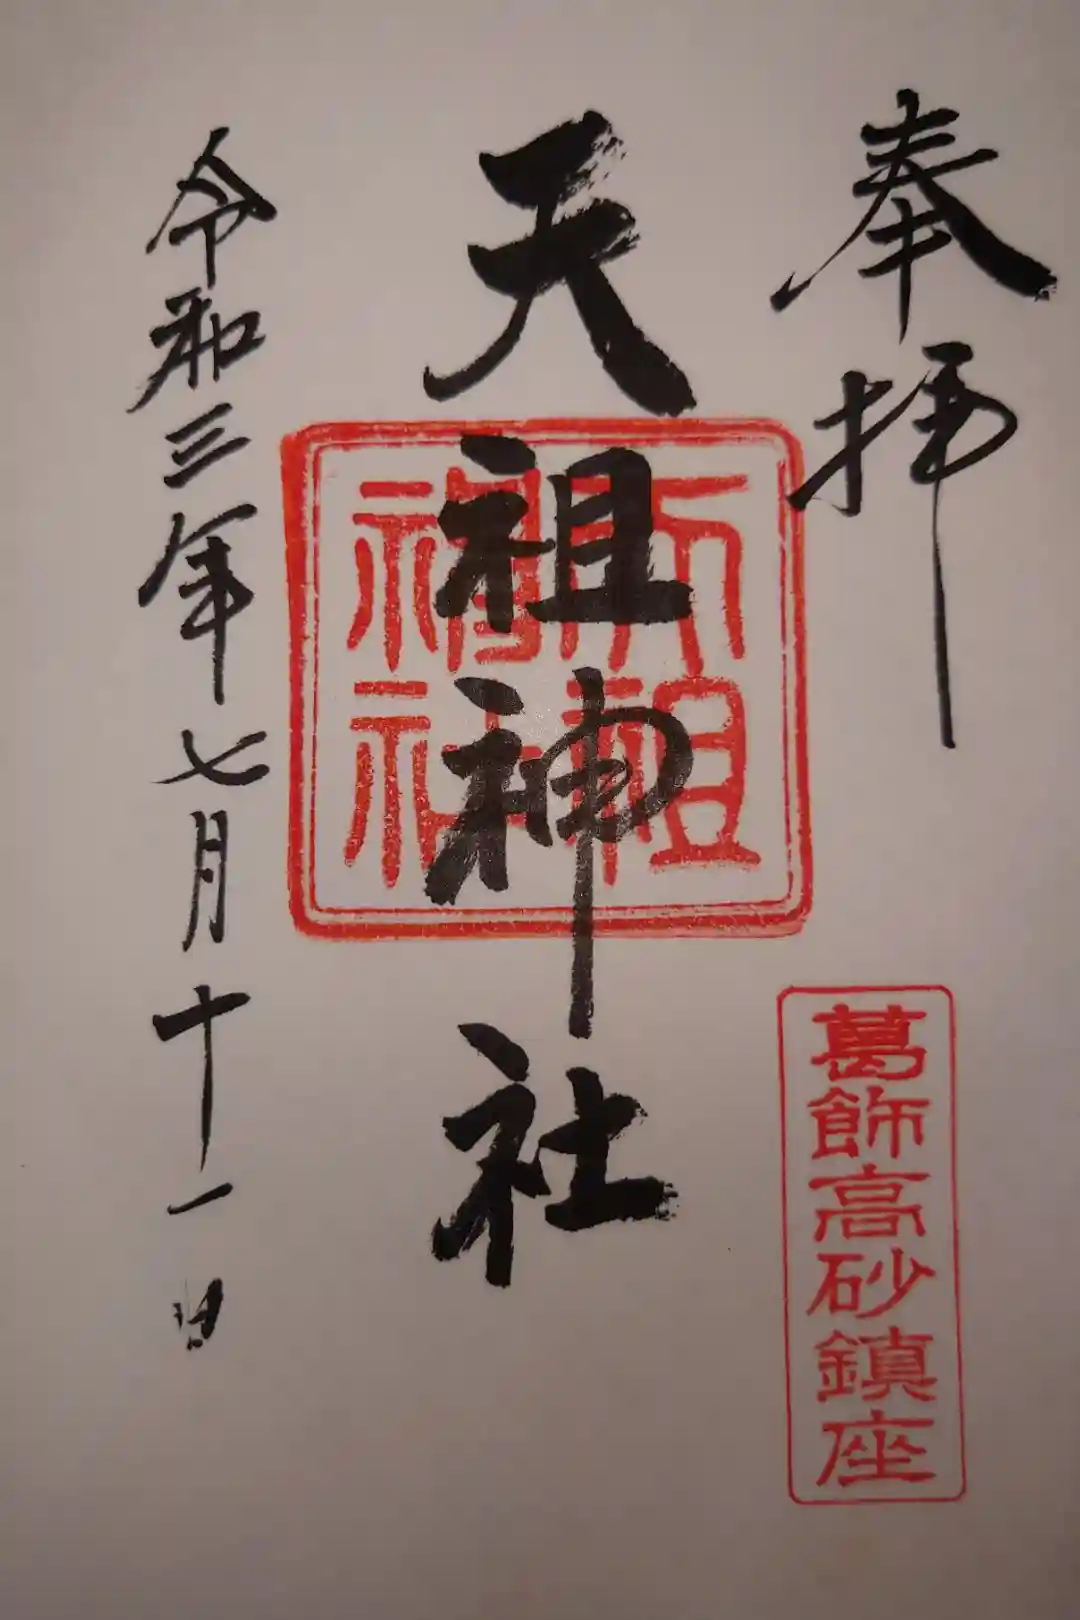 奉拝
葛飾高砂鎮座
天祖神社
天祖
神社
令和三年七月十一日